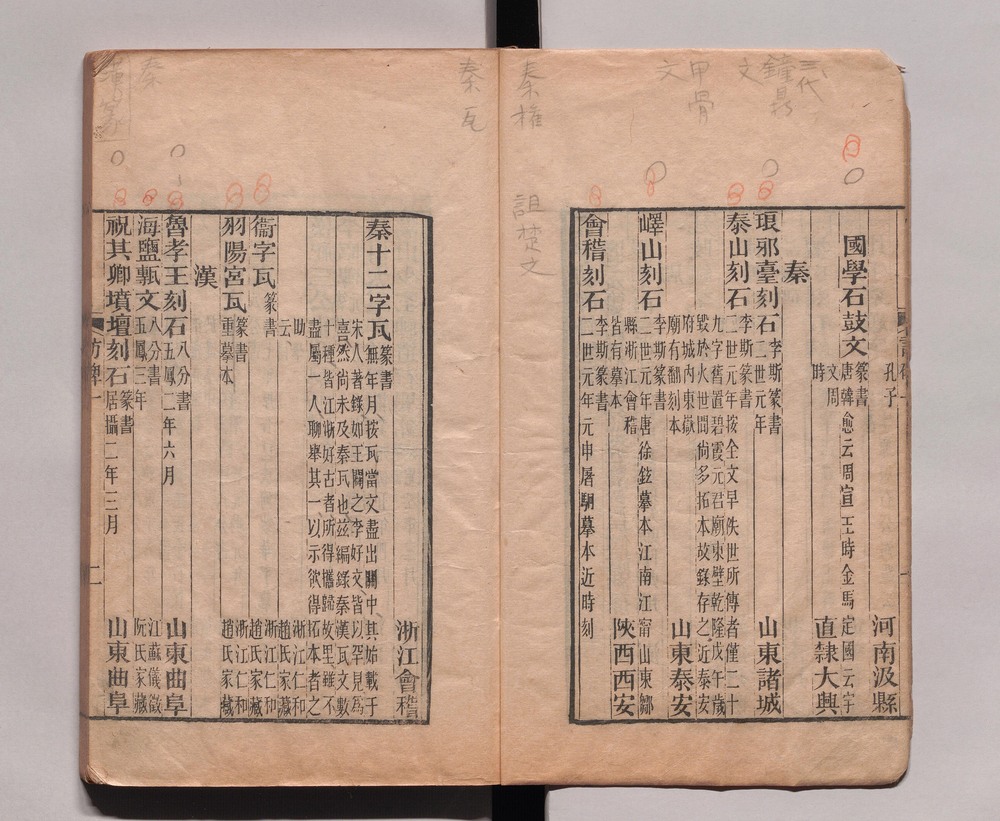 三代
鐘鼎
文
甲骨
文
秦權
詛楚文
孔子
河南汲縣
國學石鼓文
篆書
唐韓愈云周宣王時金馬定國云宇
文周
時
直隸大興
秦
琅邪臺刻石
李斯篆書
二世元年
山東諸城
泰山刻石
李斯篆書
二世元年按全文早佚世所傳者僅二十
九字舊置碧霞元君廟東壁乾隆戊午歲
毀於火世間尚多拓本故錄存之近泰安
府城內東嶽
廟有翻刻本
山東泰安
嶧山刻石
李斯篆書
二世元年唐徐鉉摹本江南江甯山東鄒
縣浙江會稽
皆有摹本
陝西西安
會稽刻石
李斯篆書
二世元年元申屠駉摹本近時刻
秦瓦
秦
浙江會稽
秦十二字瓦
篆書
無年月按瓦當文盡出關中其始載于
宋人著錄如王闢之李好文皆以罕見為
喜然尚未及秦瓦也茲編錄秦漢瓦文數
十種皆江浙好古者所得攜歸故里雖不
盡屬一人聊舉其一以示欲得拓本者之
助
云
浙江仁和
趙氏家藏
衞字瓦
篆書
浙江仁和
趙氏家藏
羽陽宮瓦
篆書
重摹本
浙江仁和
趙氏家藏
漢
魯孝王刻石
八分書
五鳳二年六月
山東曲阜
海鹽甎文
八分書
五鳳三年
江蘇儀徵
阮氏家藏
祝其卿墳壇刻石
篆書
居攝二年三月
山東曲阜
訪碑一
二